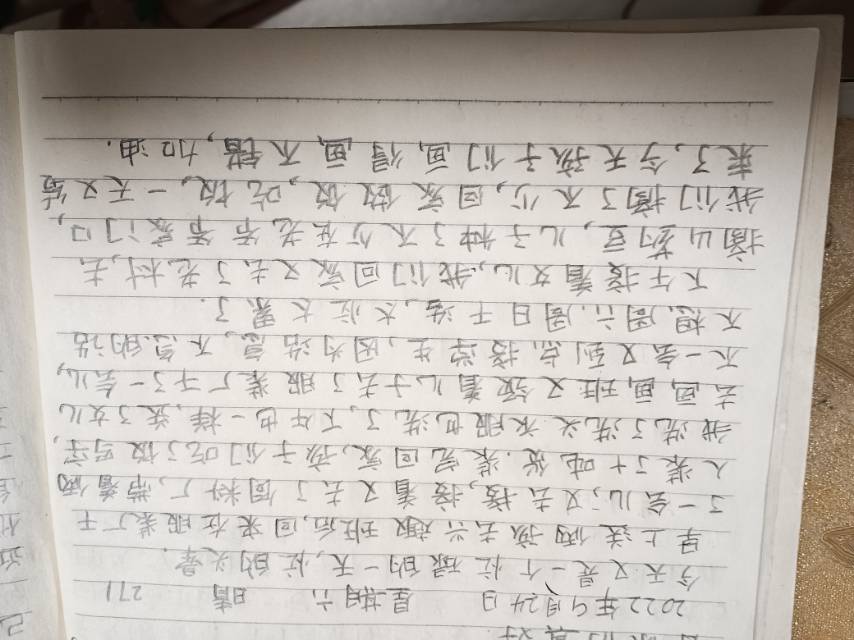 2022年9月24日 星期六 晴 271
今天又是一个忙碌的一天,忙的头晕.
早上送俩孩去兴趣班后,回来在服装厂干
了一会儿,又去接,接着又去了饲料厂,带着俩
人装了十吨货.装完回家,孩子们吃了饭写字,
我洗了洗头,衣服也洗了,下午也一样,送了女儿
去画画班又领着儿子去了服装厂干了一会儿,
不一会又到点接学生,因为活急,不急的话
不想周六.周日干活,太忙太累了.
下午接着女儿,我们回家又去了老村,去
摘山药豆,儿子种了不少在老爷爷家门口,
我们摘了不少,回家做饭,吃饭,一天又结
束了,今天孩子们画得画不错,加油.